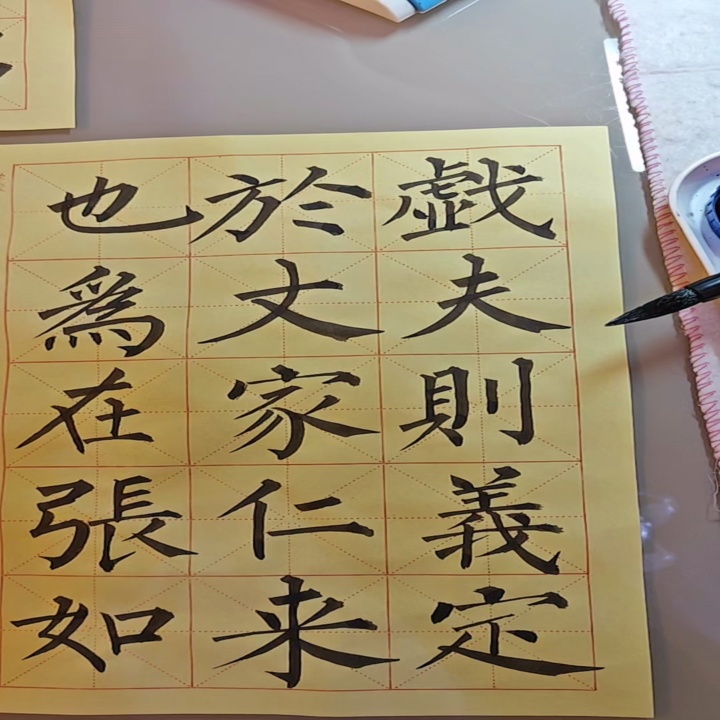 戯夫則義定
於丈家仁来
也為在張如